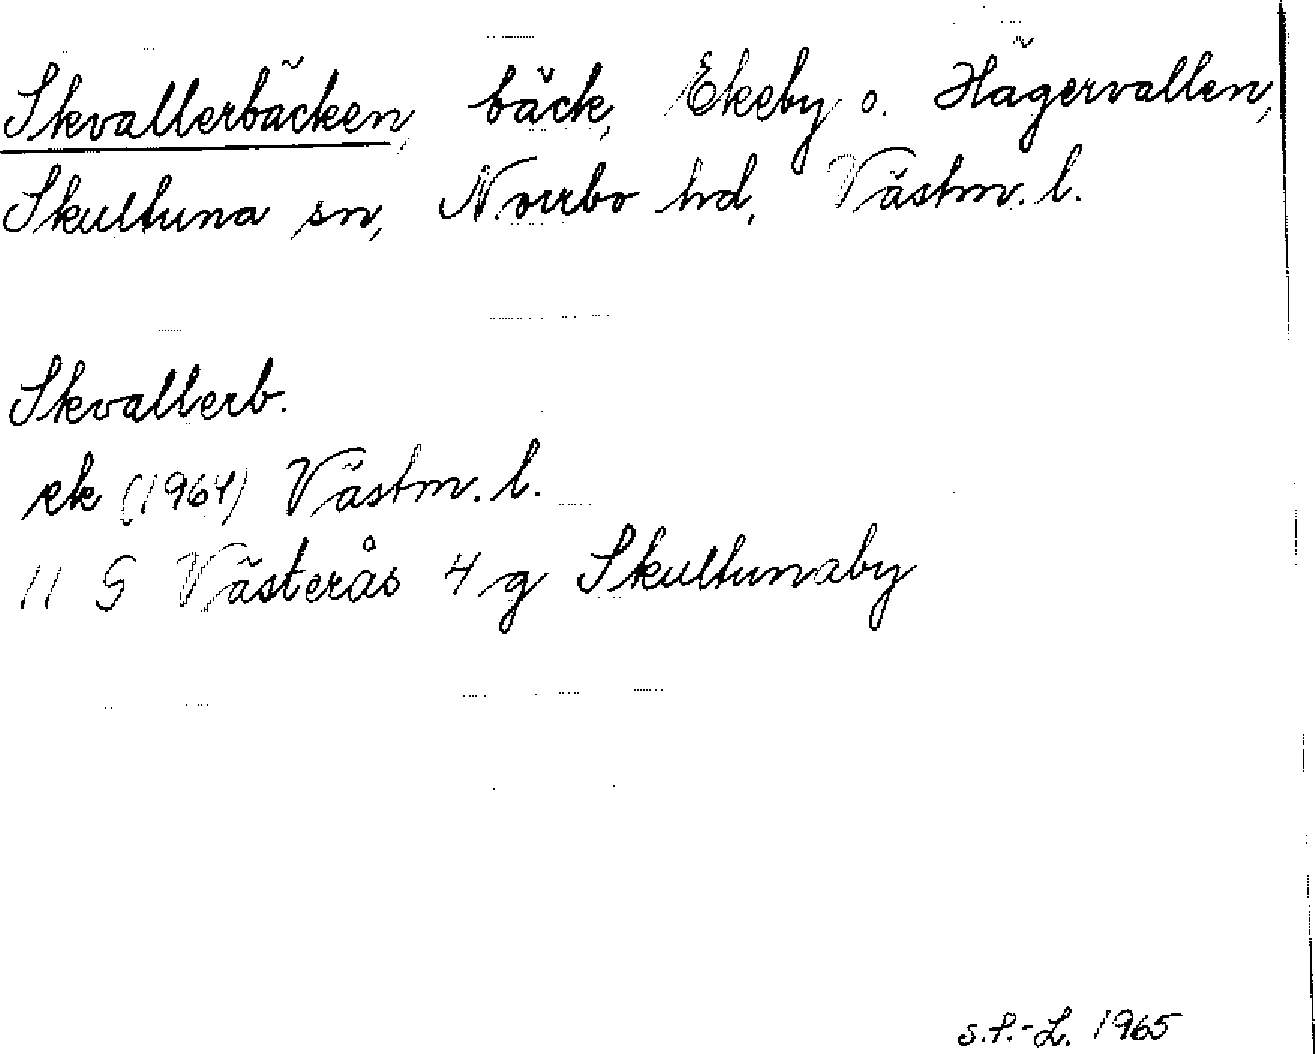 Skvallerbäcken, bäck, Ekeby o. Hägervallen,
Skultuna sn, Norrbo hd, Västm. l.
Skvallerb.
ek (1964) Västm. l.
11 G Västerås 4 g Skultunaby
S.P.-L. 1965